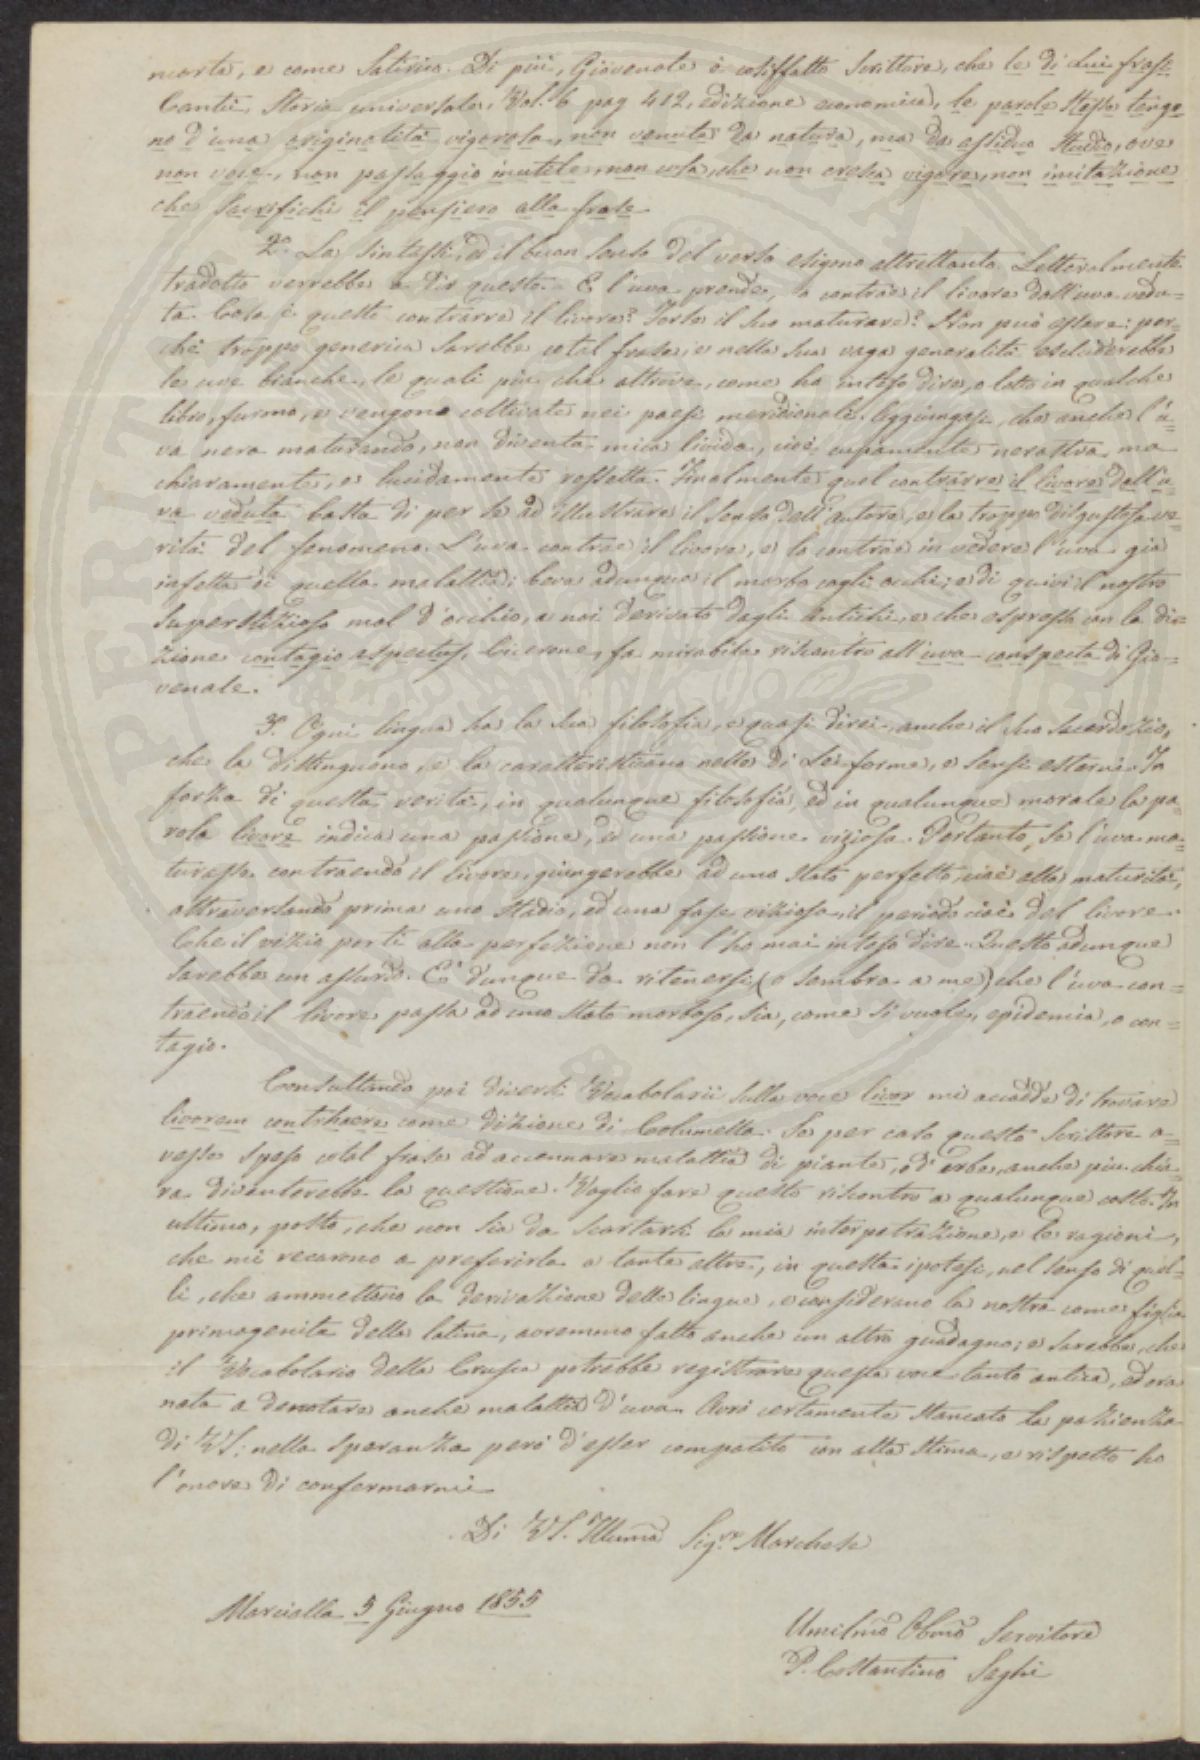 morta, e come Satirico. Di più, Giovenale è cosiffatto Scrittore, che le di Lui frasi
Cantù, Storia universale, Vol. 6 pag 412, edizione economica, le parole stesse tengo=
no d'una originalità vigorosa, non venuta da natura, ma da assiduo Studio, ove
non voce, non passaggio inutile, non cosa, che non cresca vigore, non imitazione
che sacrifichi il pensiero alla frase.
2.º La sintassi, ed il buon senso del verso esigono altrettanto. Letteralmente
tradotto verrebbe a dir questo. E l'uva prende, o contrae il livore dall'uva vedu=
ta. Cosa è questo contrarre il livore? Forse il suo maturare? Non può essere: per=
chè troppo generica sarebbe cotal frase, e nella sua vaga generalità escluderebbe
le uve bianche, le quali più che altrove, come ho inteso dire, o letto in qualche
libro, furono, e vengono coltivate nei paesi meridionali. Aggiungasi, che anche l'u=
va nera maturando, non diventa mica livida, cioè cupamente nerastra, ma
chiaramente, e lucidamente rossetta. Finalmente quel contrarre il livore dall'u=
va veduta basta di per se ad illustrare il senso dell'autore, e la troppo disgustosa ve=
rità del fenomeno. L'uva contrae il livore, e lo contrae in vedere l'uva già
infetta di quella malattia; beve adunque il morbo cogli occhi; e di quivi il nostro
superstizioso mal d'occhio, a noi derivato dagli antichi, e che espresso con la di=
zione contagio aspectus, Cicerone, fa mirabile riscontro all'uva conspecta di Gio=
venale.
3.º Ogni lingua ha la sua filosofia, e quasi direi, anche il suo sacerdozio,
che la distinguono, e la caratteristicano nelle di Lei forme, e sensi esterni. In
forza di questa verità, in qualunque filosofia, ed in qualunque morale la pa=
rola livore indica una passione, ed una passione viziosa. Pertanto, se l'uva ma=
turasse contraendo il livore, giungerebbe ad uno stato perfetto, cioè alla maturità,
attraversando prima uno stadio, ed una fase viziosa, il periodo cioè del livore.
Che il vizio porti alla perfezione non l'ho mai inteso dire. Questo adunque
sarebbe un assurdo. E' dunque da ritenersi (o sembra a me) che l'uva con=
traendo il livore passa ad uno stato morboso, sia, come si vuole, epidemia, o con=
tagio.
Consultando poi diversi Vocabolarii sulla voce livor mi accadde di trovare
livorem contrhaere come dizione di Columella. Se per caso questo Scrittore a=
vesse speso cotal frase ad accennare malattia di piante, o d'erbe, anche più chia=
ra diventerebbe la questione. Voglio fare questo riscontro a qualunque costo. In
ultimo, posto, che non sia da scartarsi la mia interpetrazione, e le ragioni,
che mi recarono a preferirla a tante altre, in questa ipotesi, nel senso di quel=
li, che ammettono la derivazione delle lingue, e considerano la nostra come figlia
primogenita della latina, avremmo fatto anche un altro guadagno; e sarebbe, che
il Vocabolario della Crusca potrebbe registrare questa voce tanto antica, ed ora
nata a denotare anche malattia d'uva. Avrò certamente stancato la pazienza
di VS: nella speranza però d'esser compatito con alta stima, e rispetto ho
l'onore di confermarmi
Di VS. Illuma Sig.re Marchese
Marcialla 5 Giugno 1855
Umilmo Obmo Servitore
P. Costantino Saghi